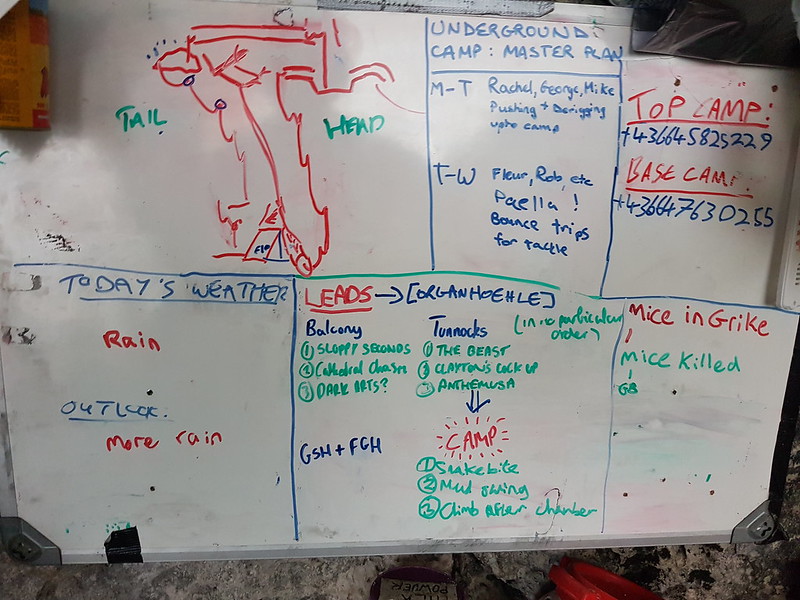 TAIL
HEAD
UNDERGROUND
CAMP: MASTER PLAN
M-T Rachel, George, Mike
Pushing + Derigging
upto camp
T-W Fleur, Rob, etc
Paella!
Bounce trips
for tackle
TOP CAMP:
+436645825229
BASE CAMP:
+436647630255
TODAY'S WEATHER
Rain
OUTLOOK.
More rain
LEADS → [ORGANHOEHLE]
(in no particular order)
Balcony
① SLOPPY SECONDS
② Cathedral Chasm
③ DARK ARTS?
GSH + FGH
Tunnocks
① THE BEAST
② CLAYTON'S COCK UP
③ ANTHEMUSA
CAMP
① Snakebite
② Mud swing
③ Climb After chamber
Mice in Grike
1
Mice Killed
1
GB